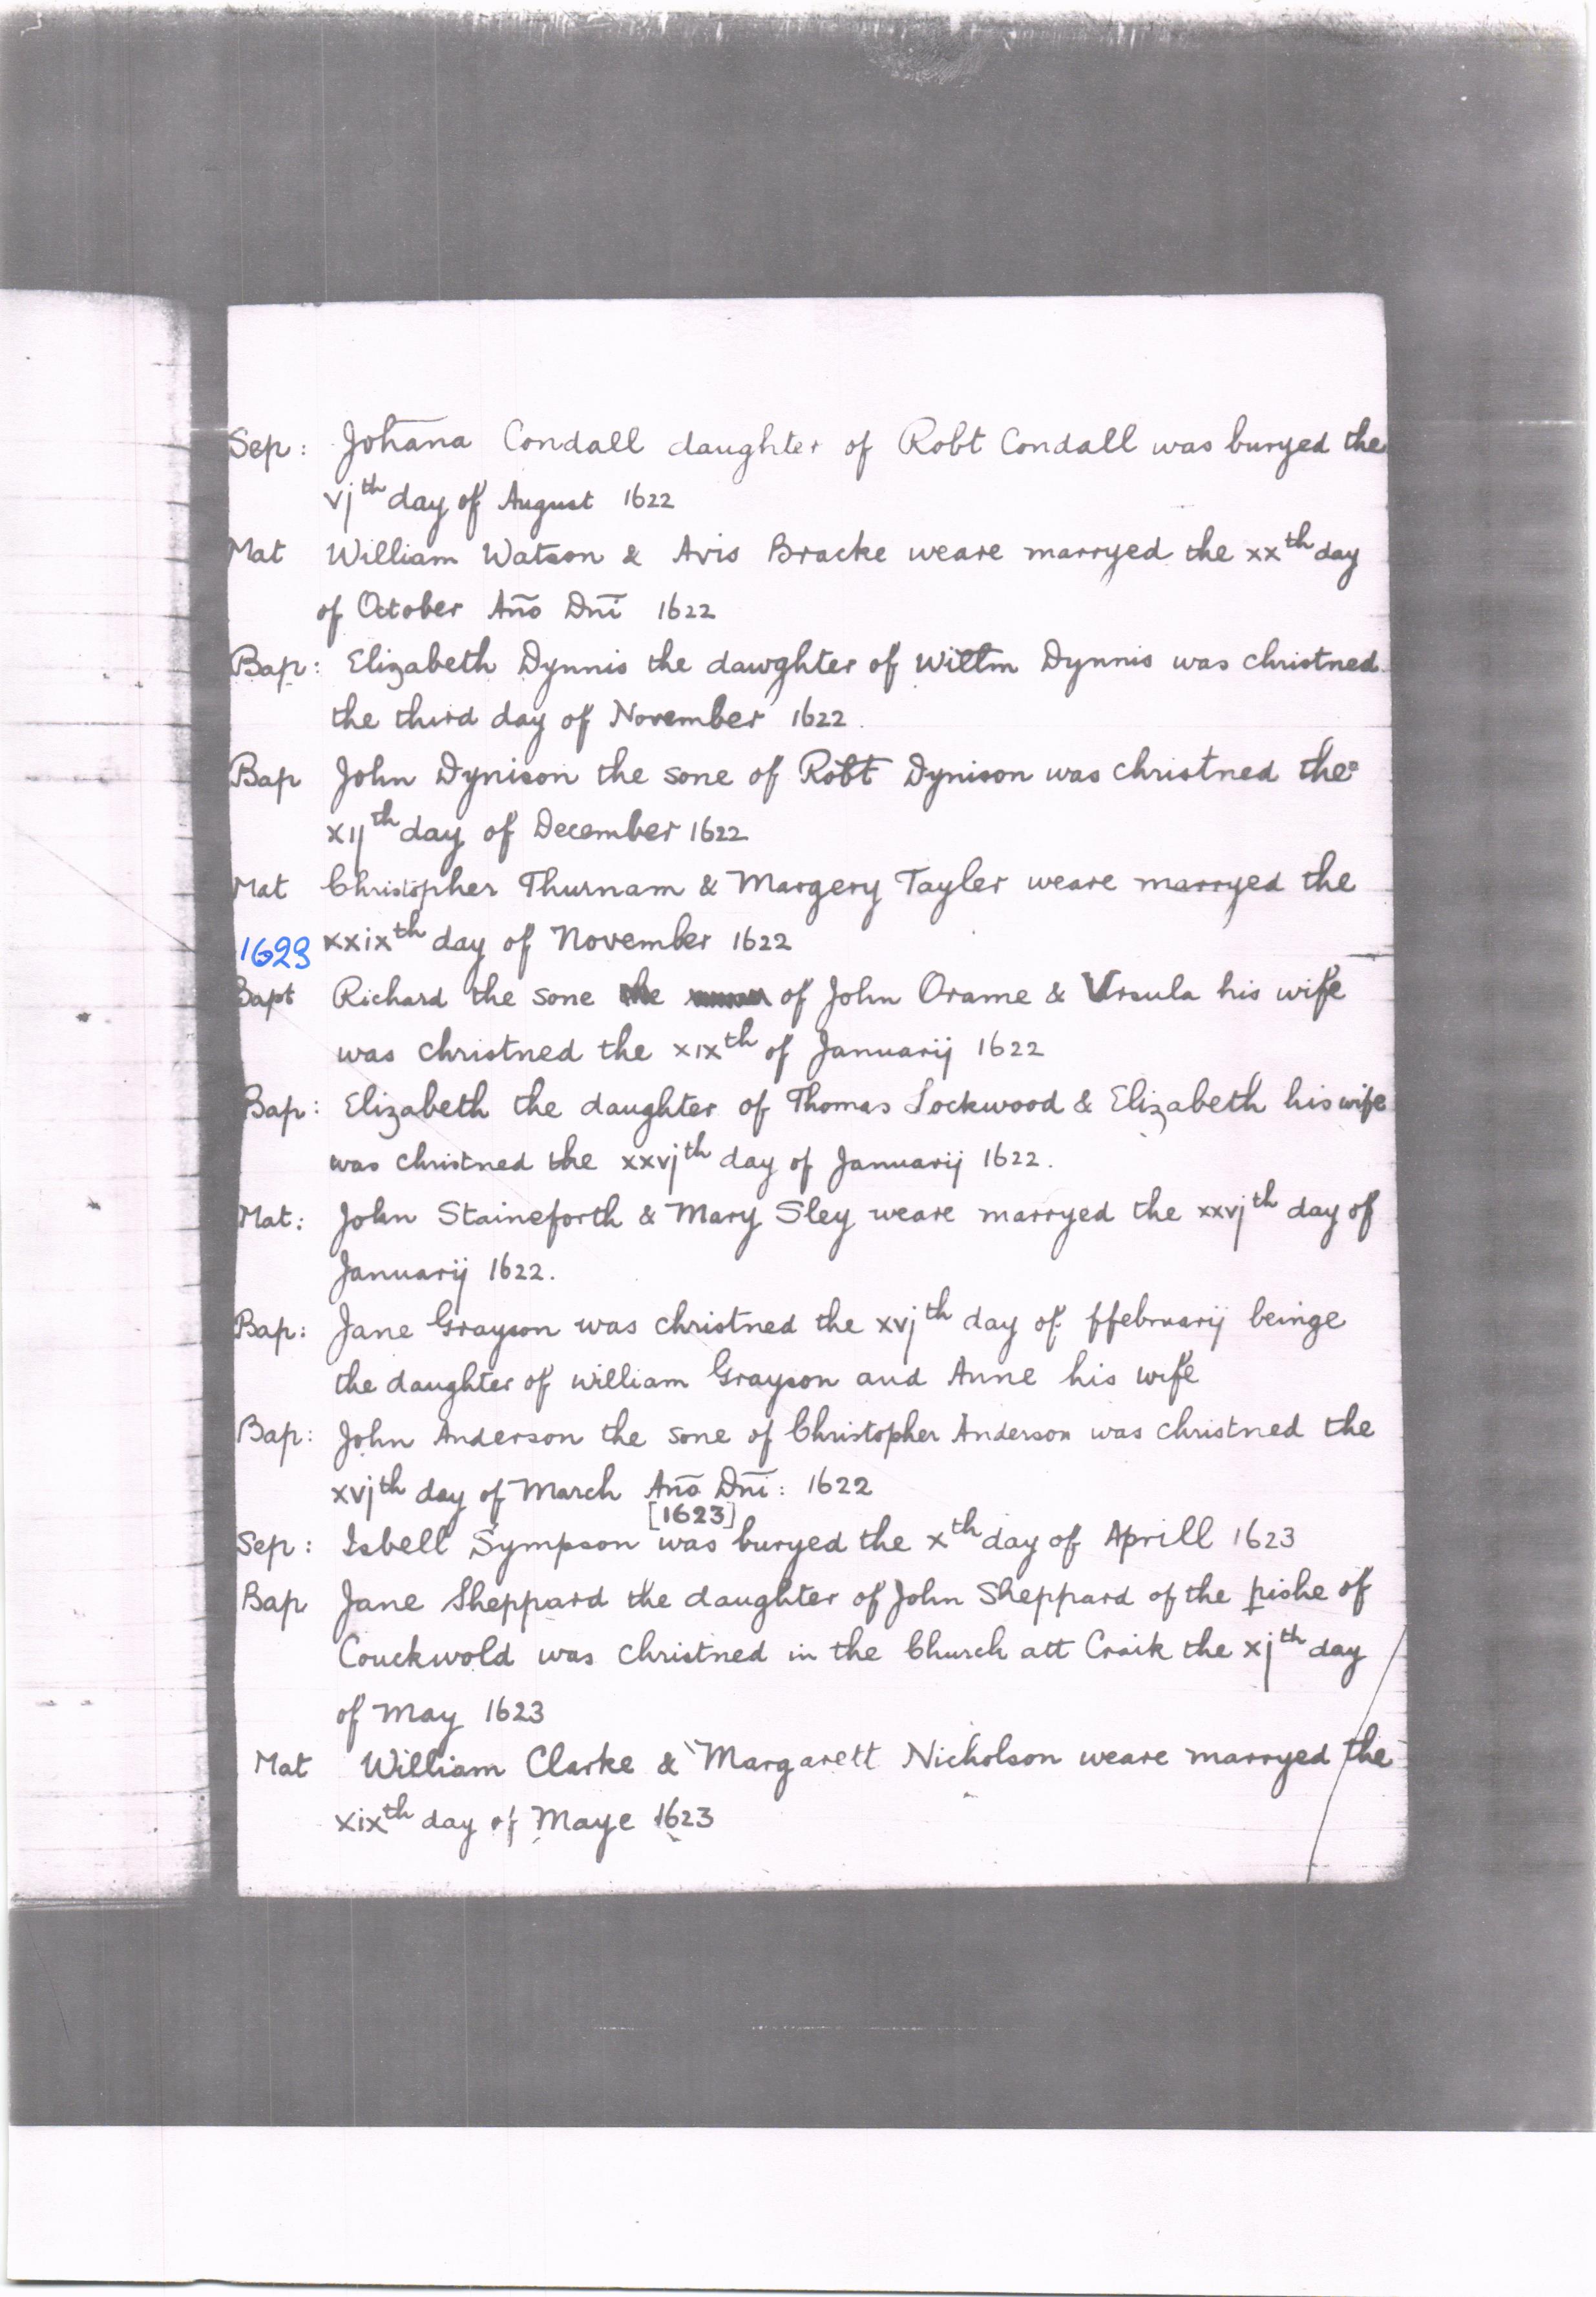 Sep: Johāna Condall daughter of Robt Condall was buryed the
vjth day of August 1622
Mat William Watson & Avis Bracke weare marryed the xxth day
of October Año Dñi 1622
Bap: Elizabeth Dynnis the dawghter of Willm Dynnis was christned
the third day of November 1622.
Bap John Dynison the sone of Robt Dynison was christned the
xijth day of December 1622
Mat Christopher Thurnam & Margery Tayler weare marryed the
1623 xxixth day of November 1622
Bapt Richard the sone of John Orame & Vrsula his wife
was christned the xixth of Januarij 1622
Bap: Elizabeth the daughter of Thomas Lockwood & Elizabeth his wife
was christned the xxvjth day of Januarij 1622.
Mat: John Staineforth & Mary Sley weare marryed the xxvjth day of
Januarij 1622.
Bap: Jane Grayson was christned the xvjth day of ffebruarij beinge
the daughter of william Grayson and Anne his wife
Bap: John Anderson the sone of Christopher Anderson was christned the
xvjth day of March Año Dñi: 1622
[1623]
Sep: Isbell Sympson was buryed the xth day of Aprill 1623
Bap Jane Sheppard the daughter of John Sheppard of the pishe of
Couckwold was christned in the Church att Craik the xjth day
of May 1623
Mat William Clarke & Margarett Nicholson weare marryed the
xixth day of Maye 1623